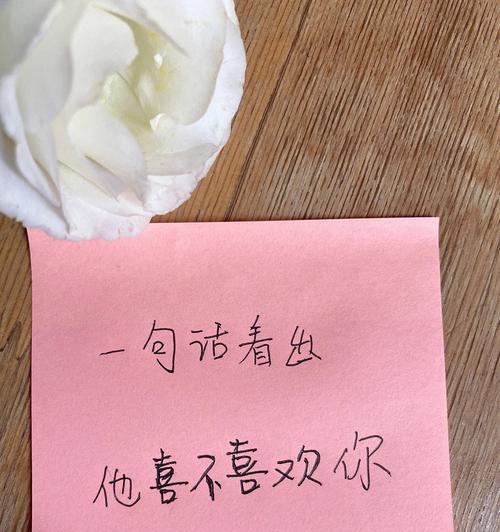 一句话看出
他喜不喜欢你